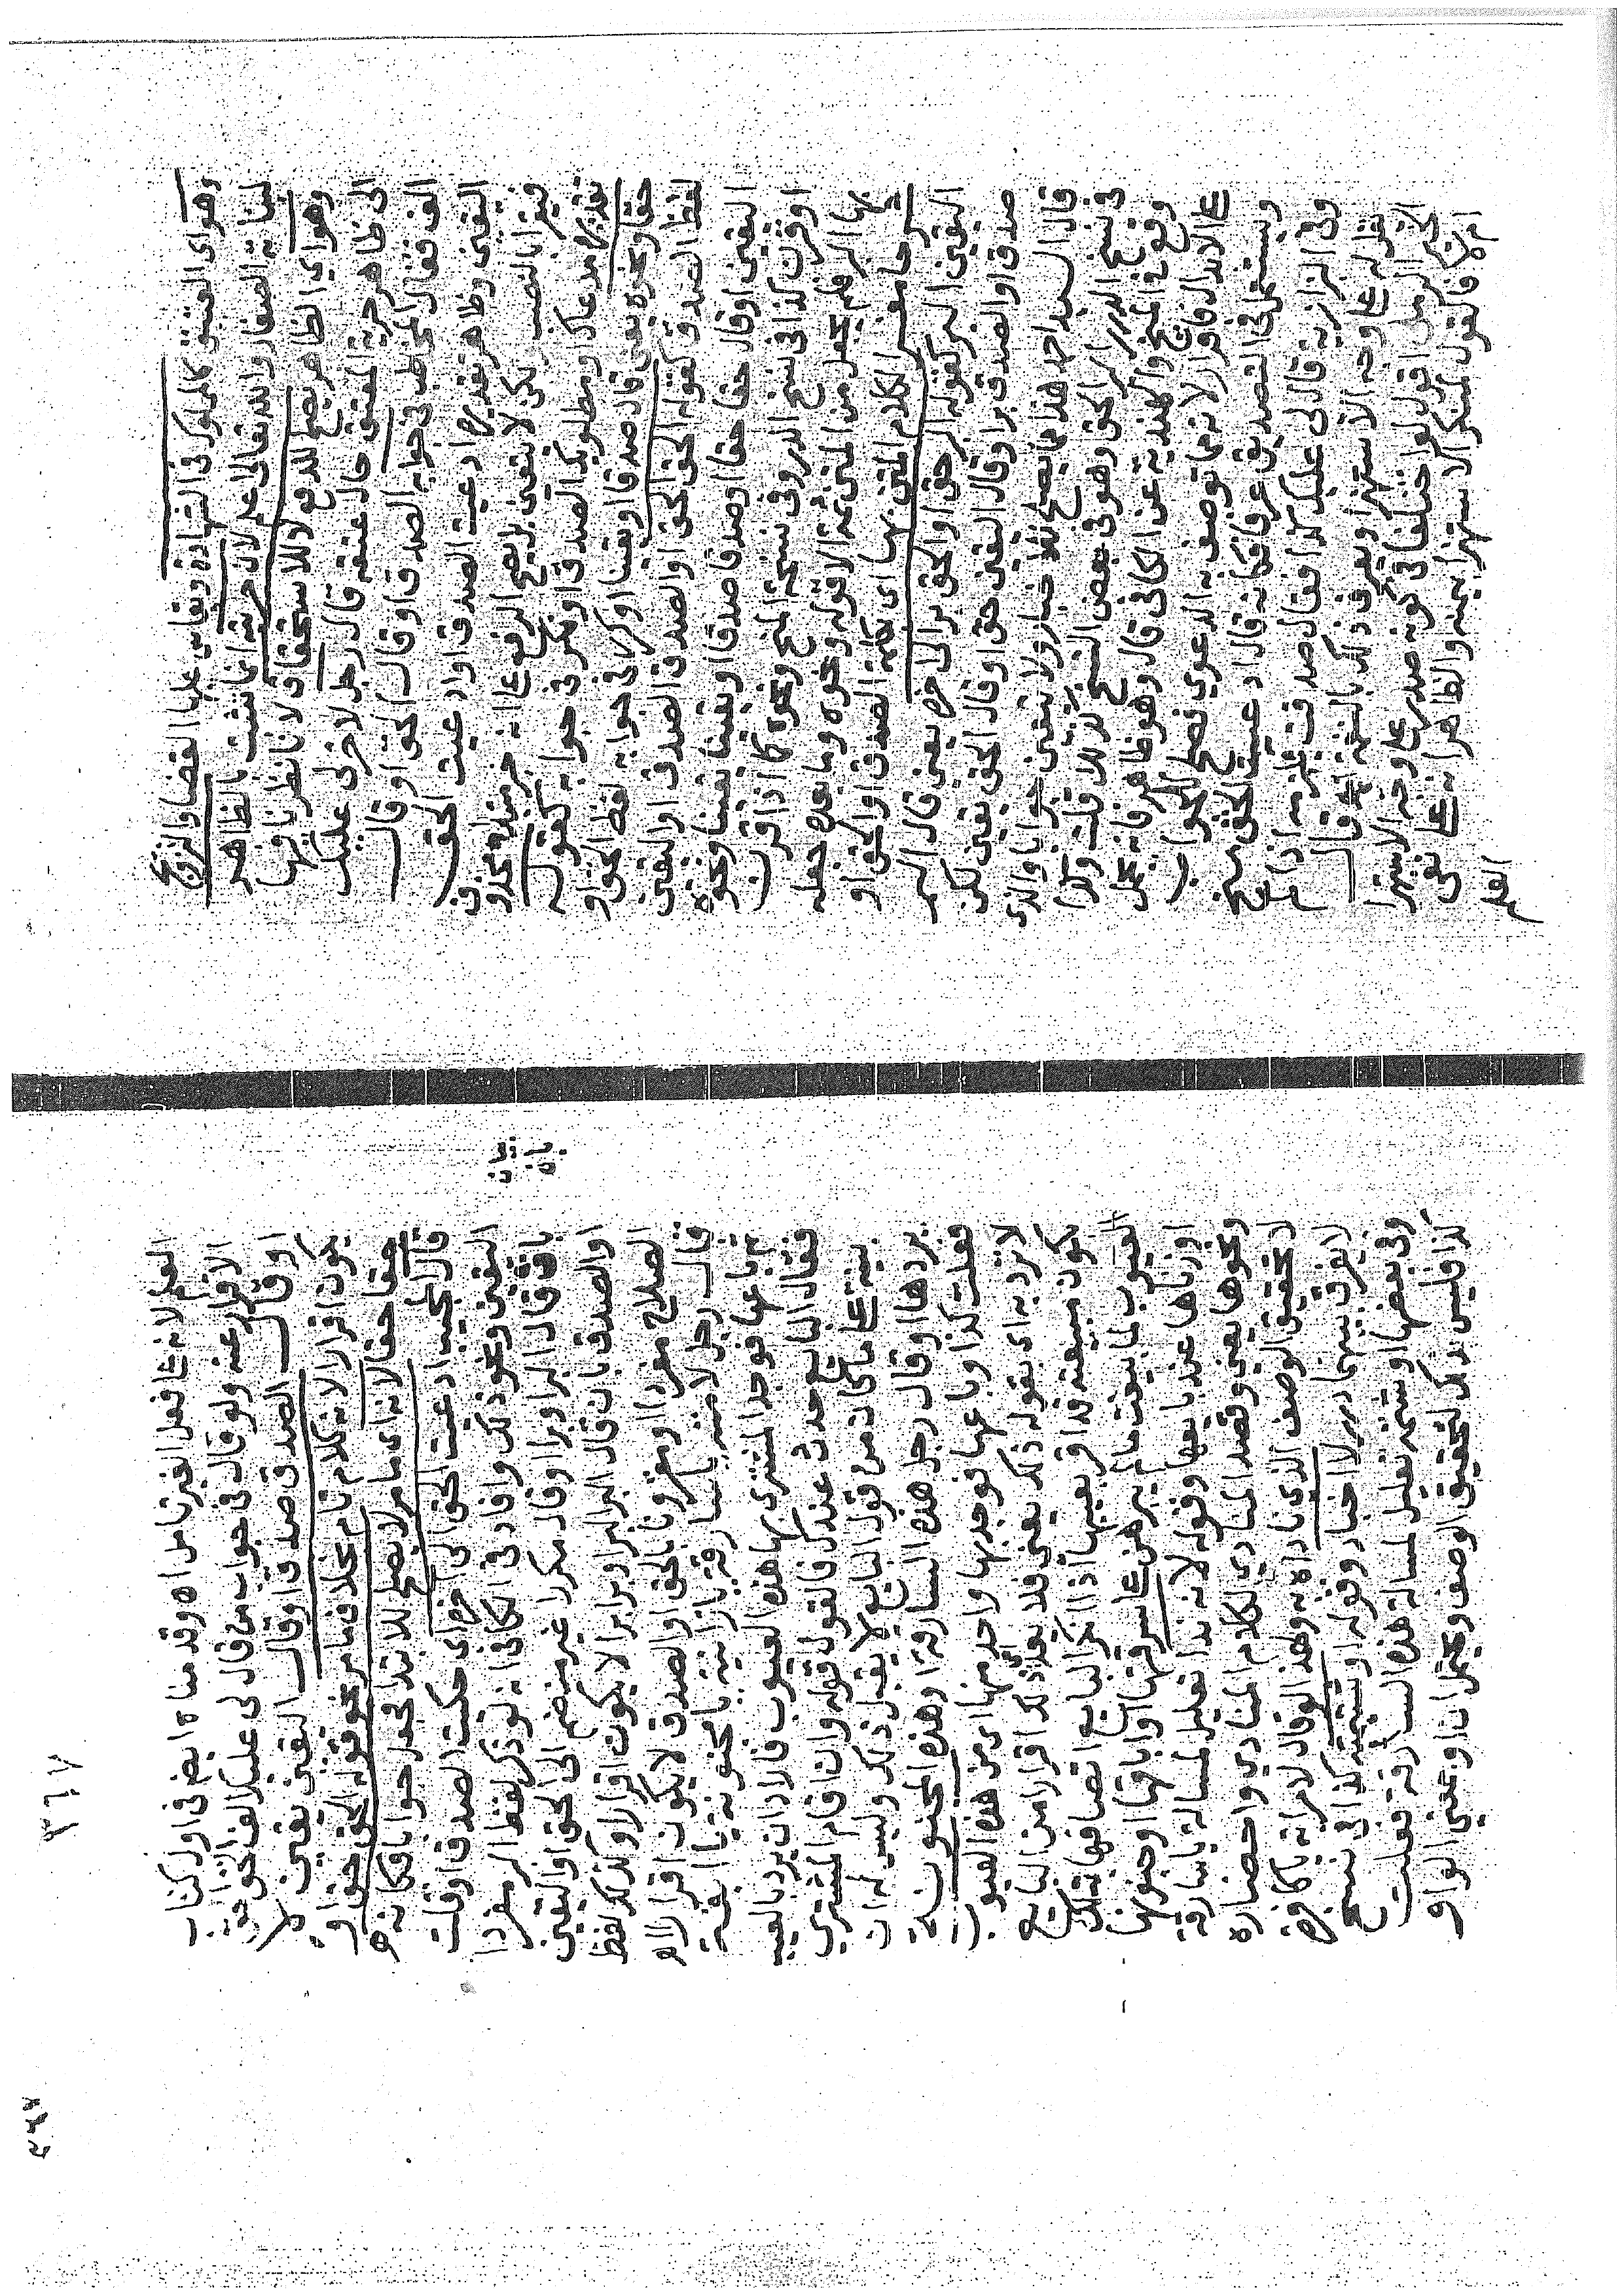 وهو اى العتيق كالمملوك فى الشهادة ويقاس عليها القضا والتزوج
لبناته الصغار والله تعالى اعلم لان حريته انما تثبت بالظاهر
وهو اي الظاهر يصلح للدفع لا للاستحقاق لانا نظرنا فيها
الى ظاهر حرية المعتق حال عتقه قال رجل لاخر لى عليك
الف فقال المخاطب فى جوابه الصدق او قال الحق او قال
اليقين وظاهر تقديره ادعيت الصدق او ادعيت الحق
فيقرا بالنصب لكن لا يتعين بل يصح الرفع على انه خبر مبتدا محذوف
تقديره مدعاك او مطلوبك الصدق او نكر فى جوابه كقوله
حقا ونحوه يعنى قال صدقا او يقينا او كرر فى جوابه لفظ الحق او
لفظ الصدق كقوله الحق الحق او الصدق الصدق او اليقين
اليقين او قال حقا حقا او صدقا صدقا او يقينا يقينا ونحوه
او قرن كذا فى نسخ الدرر وفى نسخة المنح ونحوه كما اذا قرن
بها البر فلم يجعل من المتن ثمة الا قوله ونحوه وما بعده جعله
شرحا مفسر الكلام المتن بها اى بكلمة الصدق او الحق او
اليقين البر كقوله البر حق او الحق بر الى اخره يعنى قال البر
صدق او الصدق بر او قال اليقين حق او قال الحق يقين لكن
قال السيد احمد هذا مما يصلح للاخبار ولا يتعين جوابا والذى
فى نسخ الدرر البر الحق وهو فى بعض النسخ كذلك قلت وكذا
وقع فى المنح والهندية عن الكافى قال وهو ظاهر فانه يحمل
على الابدال فاقرار لانها توصف به الدعوي فصلح الجواب
ويستعمل فى التصديق عرفا فكانه قال ادعيت الحق
وفى البزازية قال لى عليك كذا فقال صدقت يلزمه اذا لم
يقله على وجه الاستهزا ويعرف ذلك بالنغمة اه قال
الخير الرملى اقول لو اختلفا فى كونه صدر على وجه الاستهزا
ام لا فالقول لمنكر الاستهزا بيمينه والظاهر انه على نفى
العلم
العلم لانه على فعل الغير تامل اه وقدمناه ايضا فى اول كتاب
الاقرار عنه ولو قال فى جواب من قال لى عليك الف الحق حق
او قال الصدق صدق او قال اليقين يقين لا
يكون اقرارا لانه كلام تام بخلاف ما مر نحو قوله الحق حق او
حقا حقا لانه اى ما مر لا يصلح للابتدا فجعل جوابا فكانه
قال المجيب ادعيت الحق الى اخره اى حكيت الصدق او قلت
اليقين ونحو ذلك وافاد فى الكافى انه لو ذكر لفظ البر مفردا
بان قال البر او برا او قال مكررا غير منضم الى الحق او اليقين
او الصدق بان قال البر البر او برا برا لا يكون اقرارا وكذلك لفظ
الصلاح مفردا او مقرونا بالحق والصدق لا يكون اقرارا ولو
قال رجل لامته يا سارقة يا زانية يا مجنونة يا ابقة
ثم باعها فوجد المشترى بها هذه العيوب فاراد ان يرد بالعيب
فقال البايع حدث عندك فالقول قوله وان اقام المشترى
بينة على ما كان من قول البايع لا يقبل ذلك وليس له ان
يردها او قال رجل هذه السارقة او هذه المجنونة
فعلت كذا وباعها فوجد بها واحد منها اى من هذه العيوب
لا ترد به اى بقوله ذلك يعنى فلا يعد ذلك اقرارا من البايع
بكون مبيعته قد اقر بعيبها اذا انكر البايع اتصافها بتلك
العيوب لما بيعت ما لم يبرهن على سرقتها او اباقها او جنونها
او زناها عند بايعها وقوله لانه ندا تعليل لمسالة يا سارقة
ونحوها يعنى وقصد المنادي لكلام المنادي واحضاره
لا تحقيق الوصف الذى ناداه به ولهذا لو قال لامراته يا كافرة
لا يفرق بينهما درر لا اخبار وقوله او شتيمة كذا فى نسخ
وفى بعضها وشتم تعليل لمسالة هذه السارقة فعلت
كذا فليس ذلك لتحقيق الوصف ويحتمل ان او بمعنى الواو